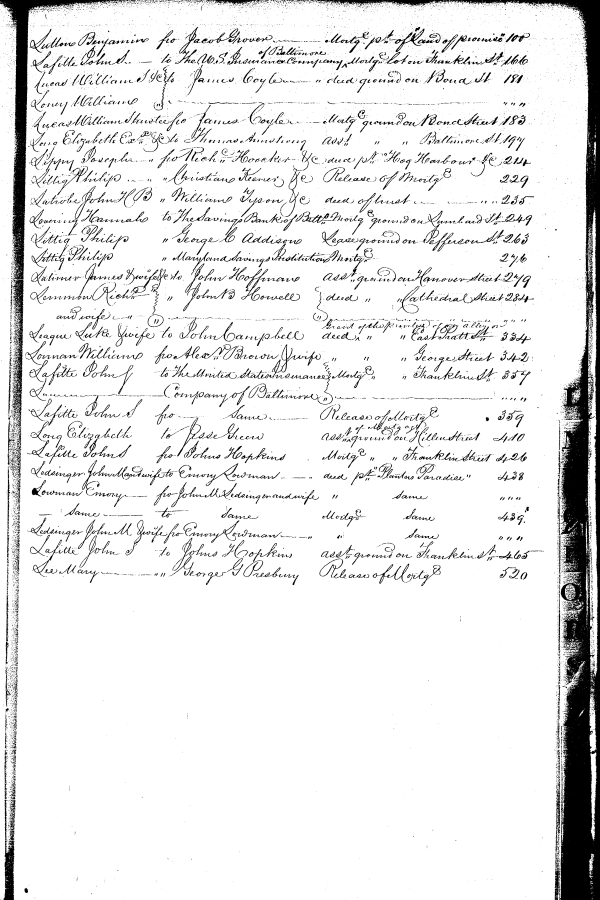 Lutton Benjamin fro Jacob Grover Mortg.e pt. of "Land of promise" 100
Lafitte John S. to The U.S. Insurance Company of Baltimore Mortg.e Lot on Franklin St. 166
Lucas William S &c fro James Coyle " deed ground on Bond St 181
Loney William " " " "
Lucas William S trustee fro James Coyle Mortg.e ground on Bond Street 183
Long Elizabeth Ex.x &c to Thomas Armstrong ass.t " " Baltimore St. 197
Lippy Joseph " fro Rich.d Hooker &c deed pt. "Hog Harbour" &c 214
Littig Philip " " Christian Keener &c Release of Mortg.e 229
Latrobe John H B " William Tyson &c deed of trust " " 235
Lovering Hannah to The Savings Bank of Balt.o Mortg.e ground on Lombard St. 249
Lottig Philip " George C Addison Lease ground on Jefferson St. 263
Lottig Philip " Maryland Savings Institution Mortg.e 276
Latimer James & wife &c to John Hoffman ass.t ground on Hanover Street 279
Lemmon Rich.d " John B Howell deed " " Cathedral Street 284
and wife " " " " " "
League Luke & wife to John Campbell deed " " East Pratt St. 334
Lonnan William fro Alex.r Brown & wife " " " George Street 342
Lafitte John S to The United States Insurance Mortg.e " " Franklin St. 357
L Company of Baltimore " " " "
Lafitte John S fro Same Release of Mortg.e 359
Long Elizabeth to Jesse Green ass.t of Mortg. of ground on Hillen Street 410
Lafitte John S fro Johns Hopkins Mortg.e " " Franklin Street 426
Ledsinger John M and wife to Emory Lowman deed pt. "Plantors Paradise" 438
Lowman Emory fro John M Ledsinger and wife " same " " "
same to same Mortg.e same 439
Ledsinger John M & wife fro Emory Lowman " " same " " "
Lafitte John S to Johns Hopkins ass.t ground on Franklin St. 465
Lee Mary " " George G Presbury Release of Mortg.e 520